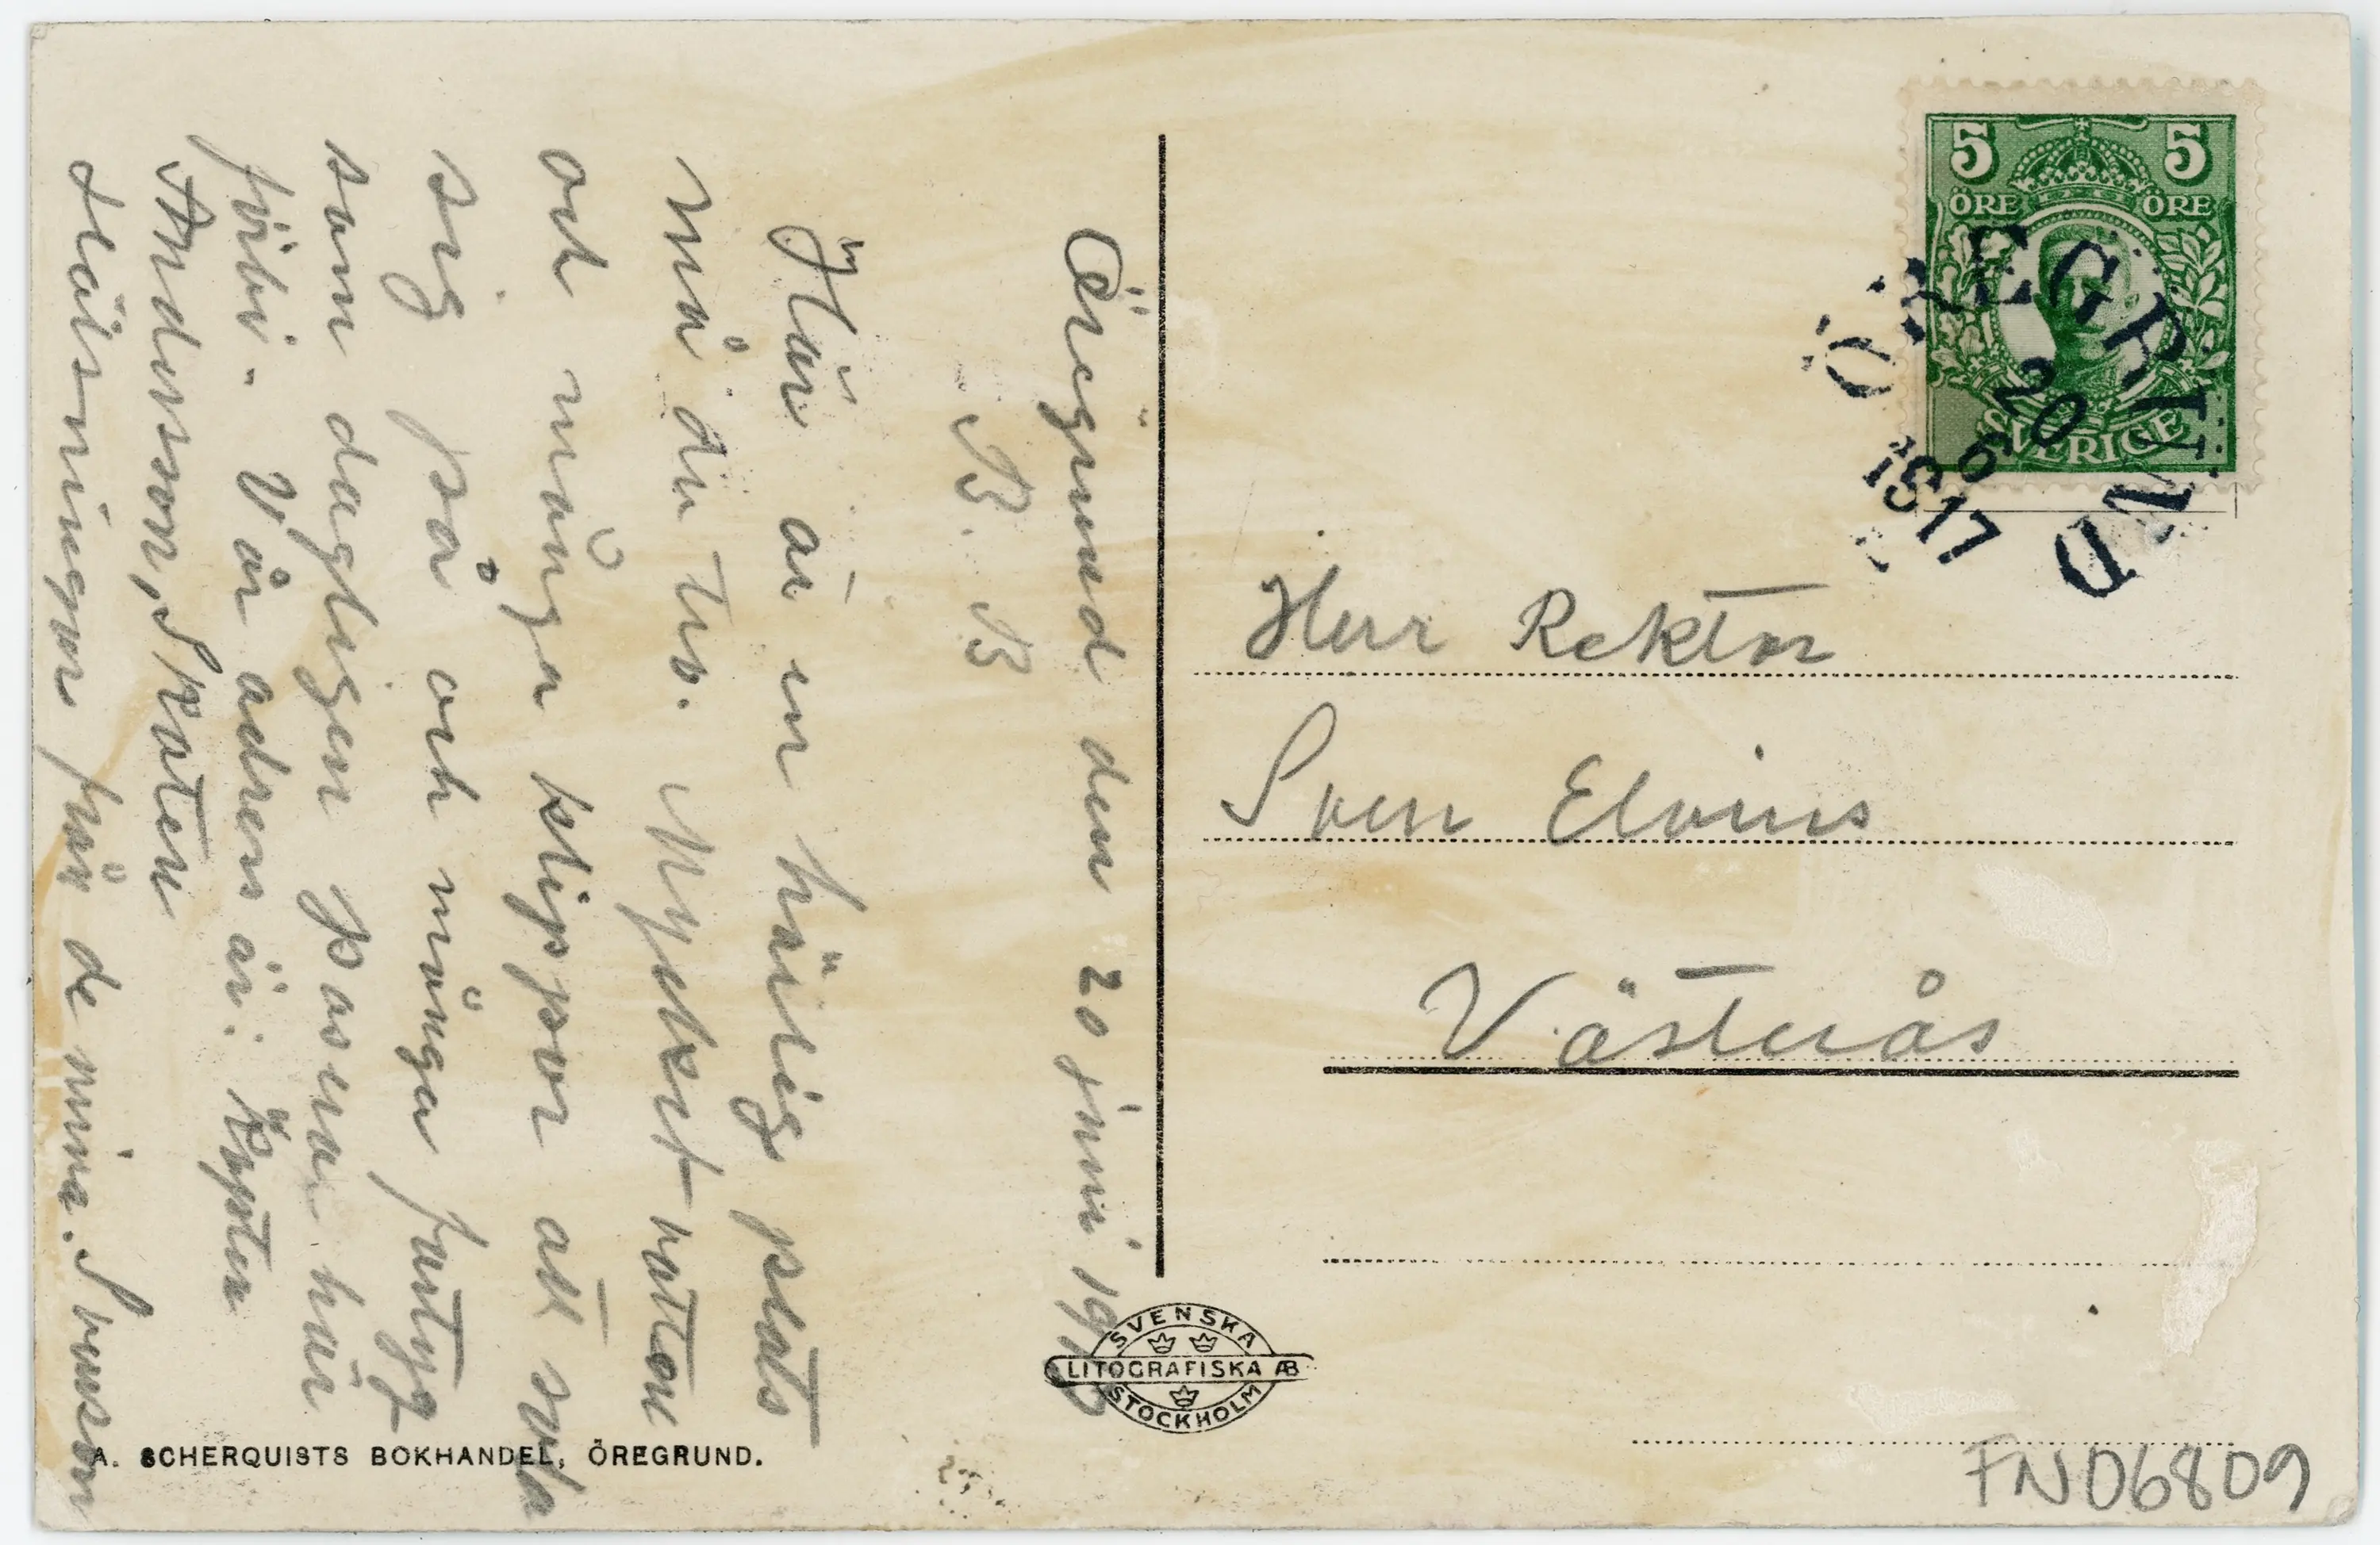 Öregrund den 20 juni 19
B. B
Här är en härlig plats
må du tro. Mycket vatten
och många klippor att sola
sig på och många fartyg
som dagligen passera här
förbi. Vår adress är: Kysten
Andersson, Skaten
Hälsningar från de mina. Svensson
A. SCHERQUISTS BOKHANDEL, ÖREGRUND.
SVENSKA
LITOGRAFISKA AB
STOCKHOLM
5 5
ÖRE ÖRE
SVERIGE
ÖREGRUND
20
6
1917
Herr Rektor
Sven Elvins
Västerås
FN06809